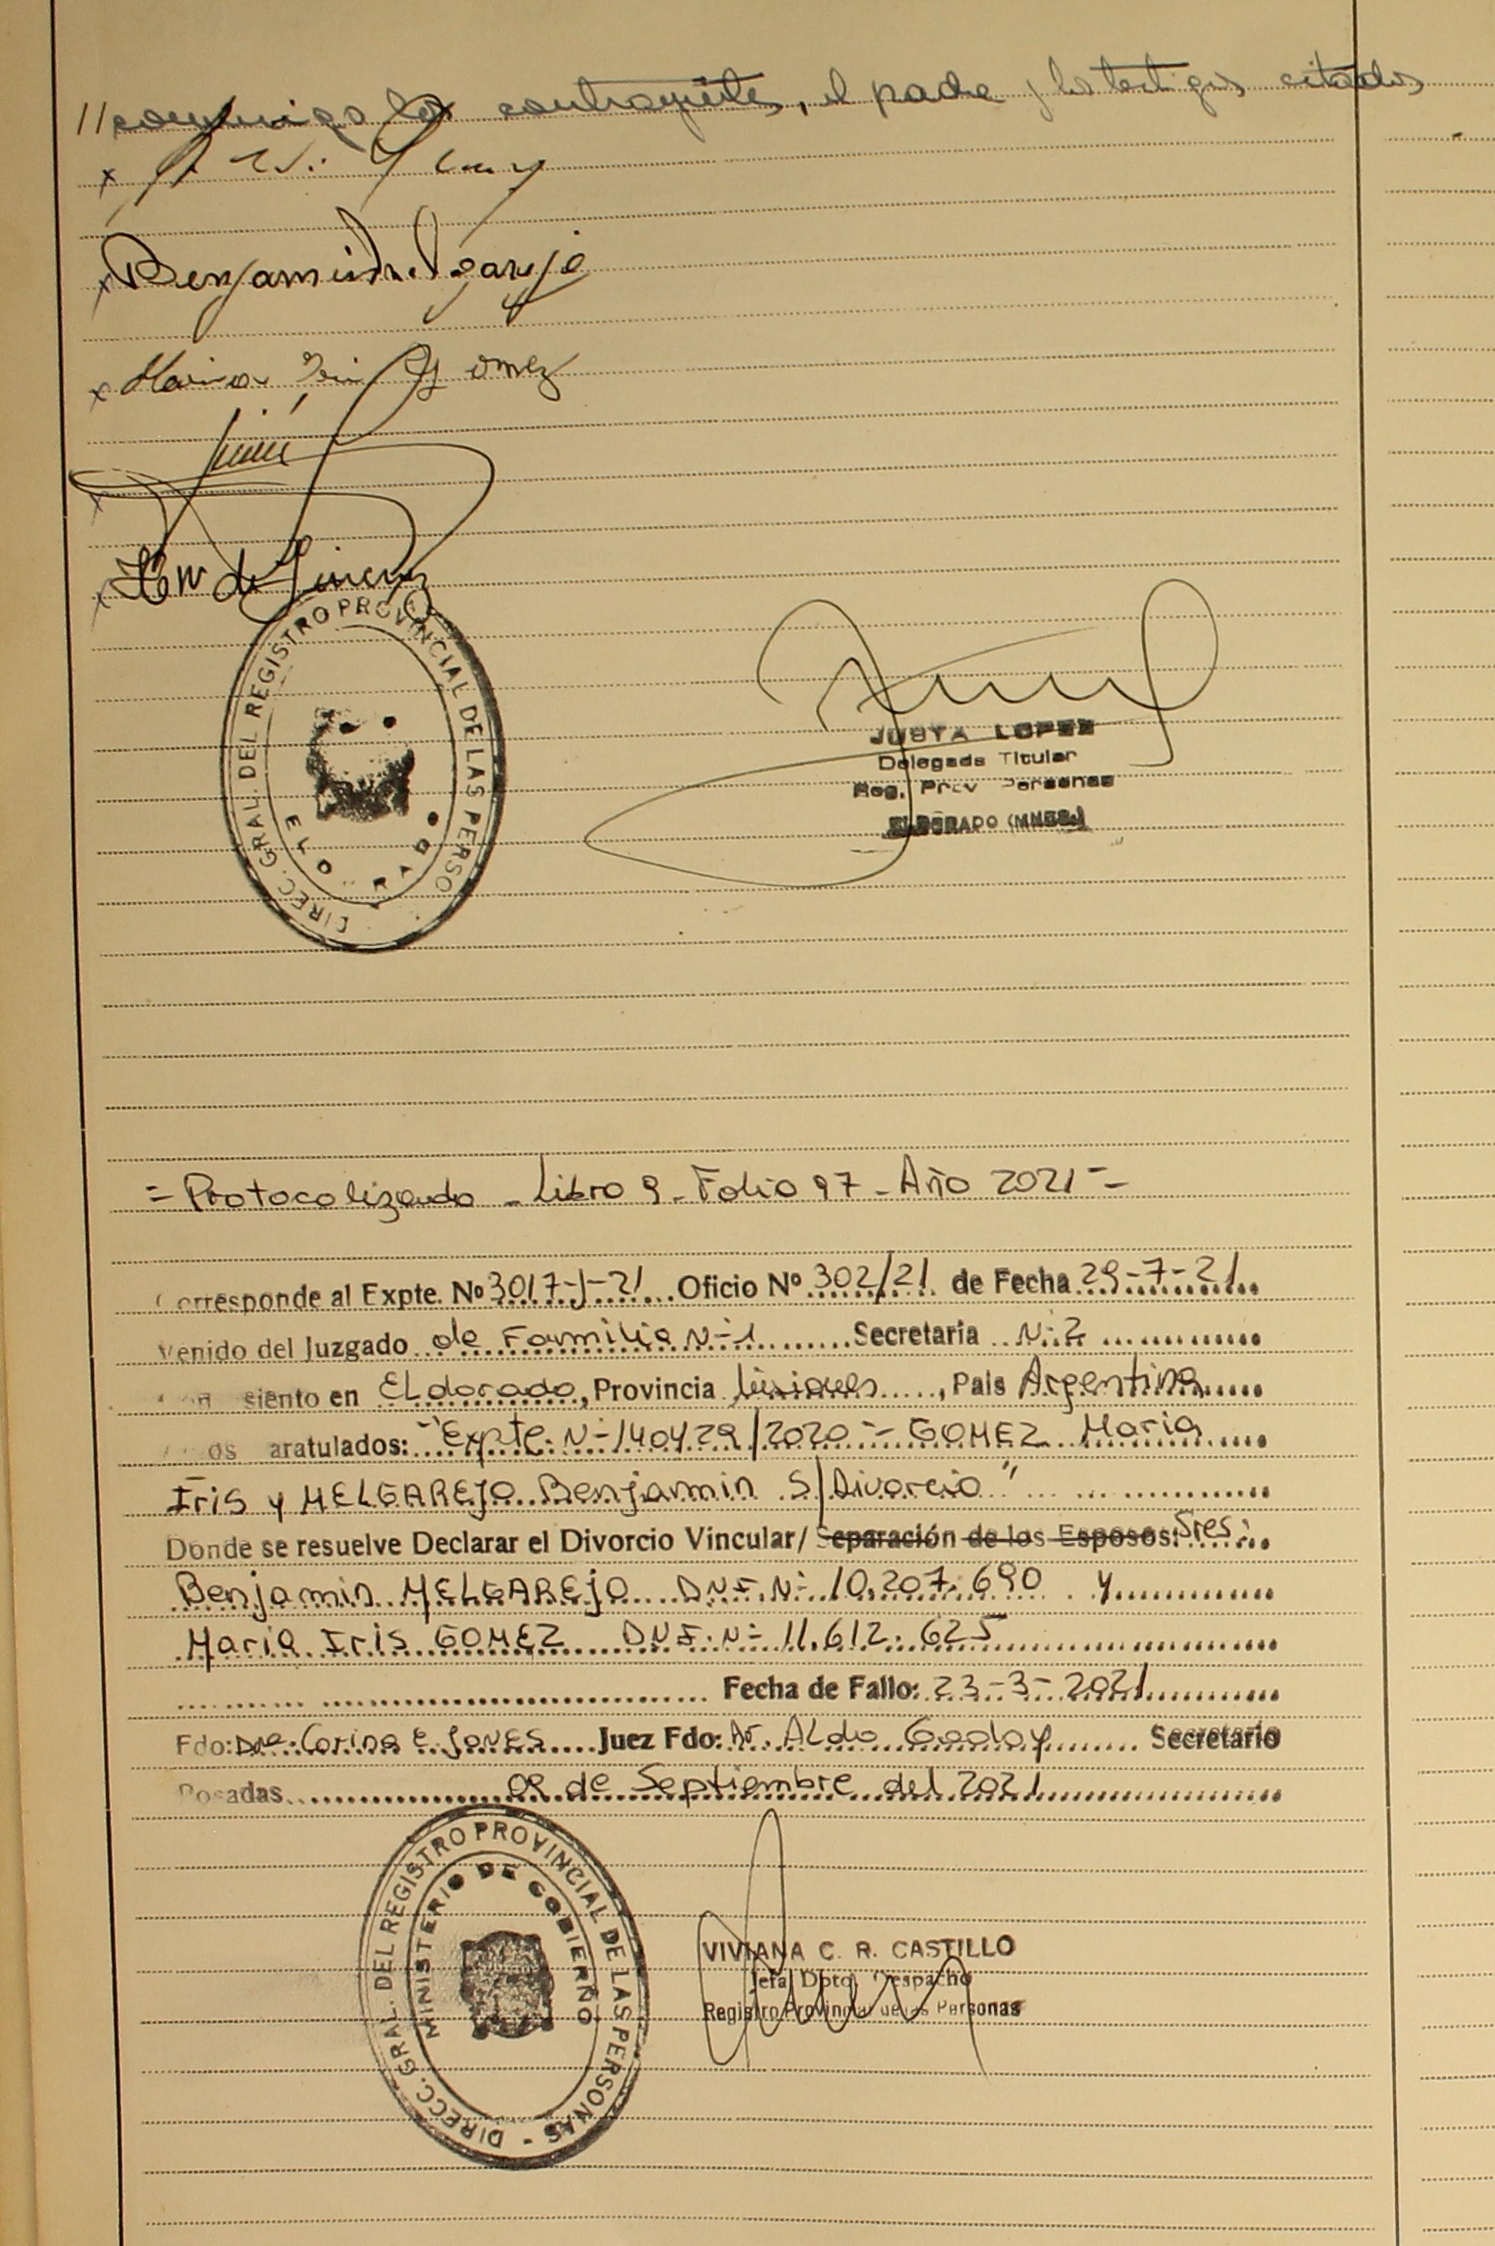 //conmigo los contrayentes, el padre y los testigos citados
x
x Benjamin Melgarejo
x Maria Iris Gomez
x
x de Gimenez
DIREC. GRAL. DEL REGISTRO PROVINCIAL DE LAS PERSO
ELDORADO
JUSTA LOPEZ
Delegada Titular
Reg. Prov Personas
ELDORADO (MNES.)
= Protocolizado - Libro 9 - Folio 97 - Año 2021 =
Corresponde al Expte. Nº 3017-J-21 Oficio Nº 302/21 de Fecha 29-7-21
Venido del Juzgado de Familia N-1 Secretaria N-2
siento en ELdorado, Provincia Misiones, Pais Argentina
os aratulados: "Expte. N-140429/2020 - GOMEZ Maria
Iris y MELGAREJO Benjamin S/Divorcio"
Donde se resuelve Declarar el Divorcio Vincular/ Separación de los Esposos: Sres:
Benjamin MELGAREJO DNI.N- 10.207.690 y
Maria Iris GOMEZ DNI.N- 11.612.625
Fecha de Fallo: 23-3-2021
Fdo: Dra. Corina E. Jones Juez Fdo: Dr. ALdo Godoy Secretario
Posadas 09 de Septiembre del 2021
DIRECC. GRAL. DEL REGISTRO PROVINCIAL DE LAS PERSONAS -
MINISTERIO DE GOBIERNO
VIVIANA C. R. CASTILLO
Jefa Dpto. Despacho
Registro Provincial de las Personas